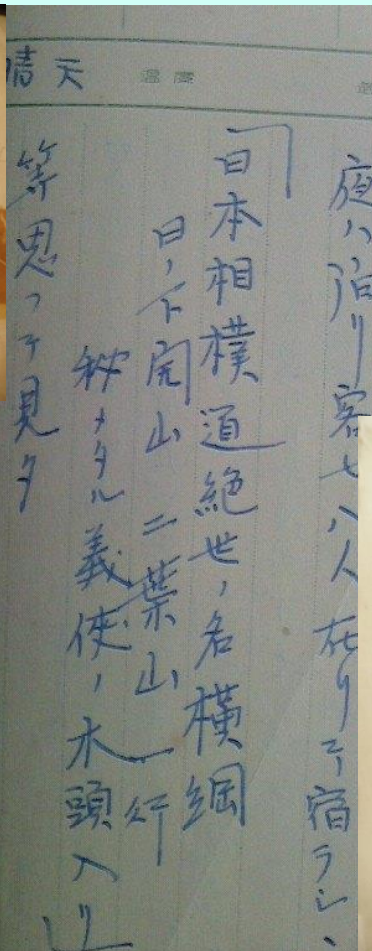 晴天 温度
夜ハ泊り客七八人在リテ宿ラシ、
「日本相撲道絶世ノ名横綱
日ノ下開山 二葉山一行
秘メタル義侠ノ木頭入リ」
等思って見タ